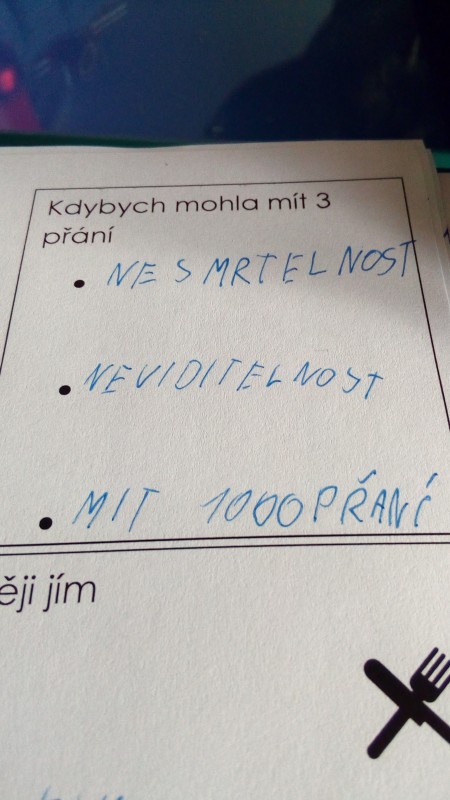 Kdybych mohla mít 3
přání
• NESMRTELNOST
• NEVIDITELNOST
• MIT 1000 PŘANÍ
ěji jím